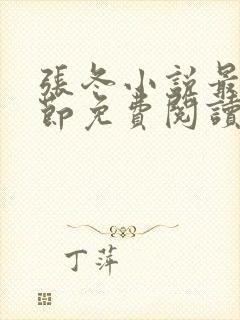 張冬小說最
節免費閱讀
丁萍